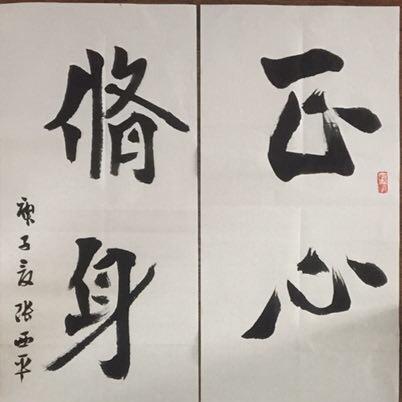 正心
脩身
庚子夏 张西平